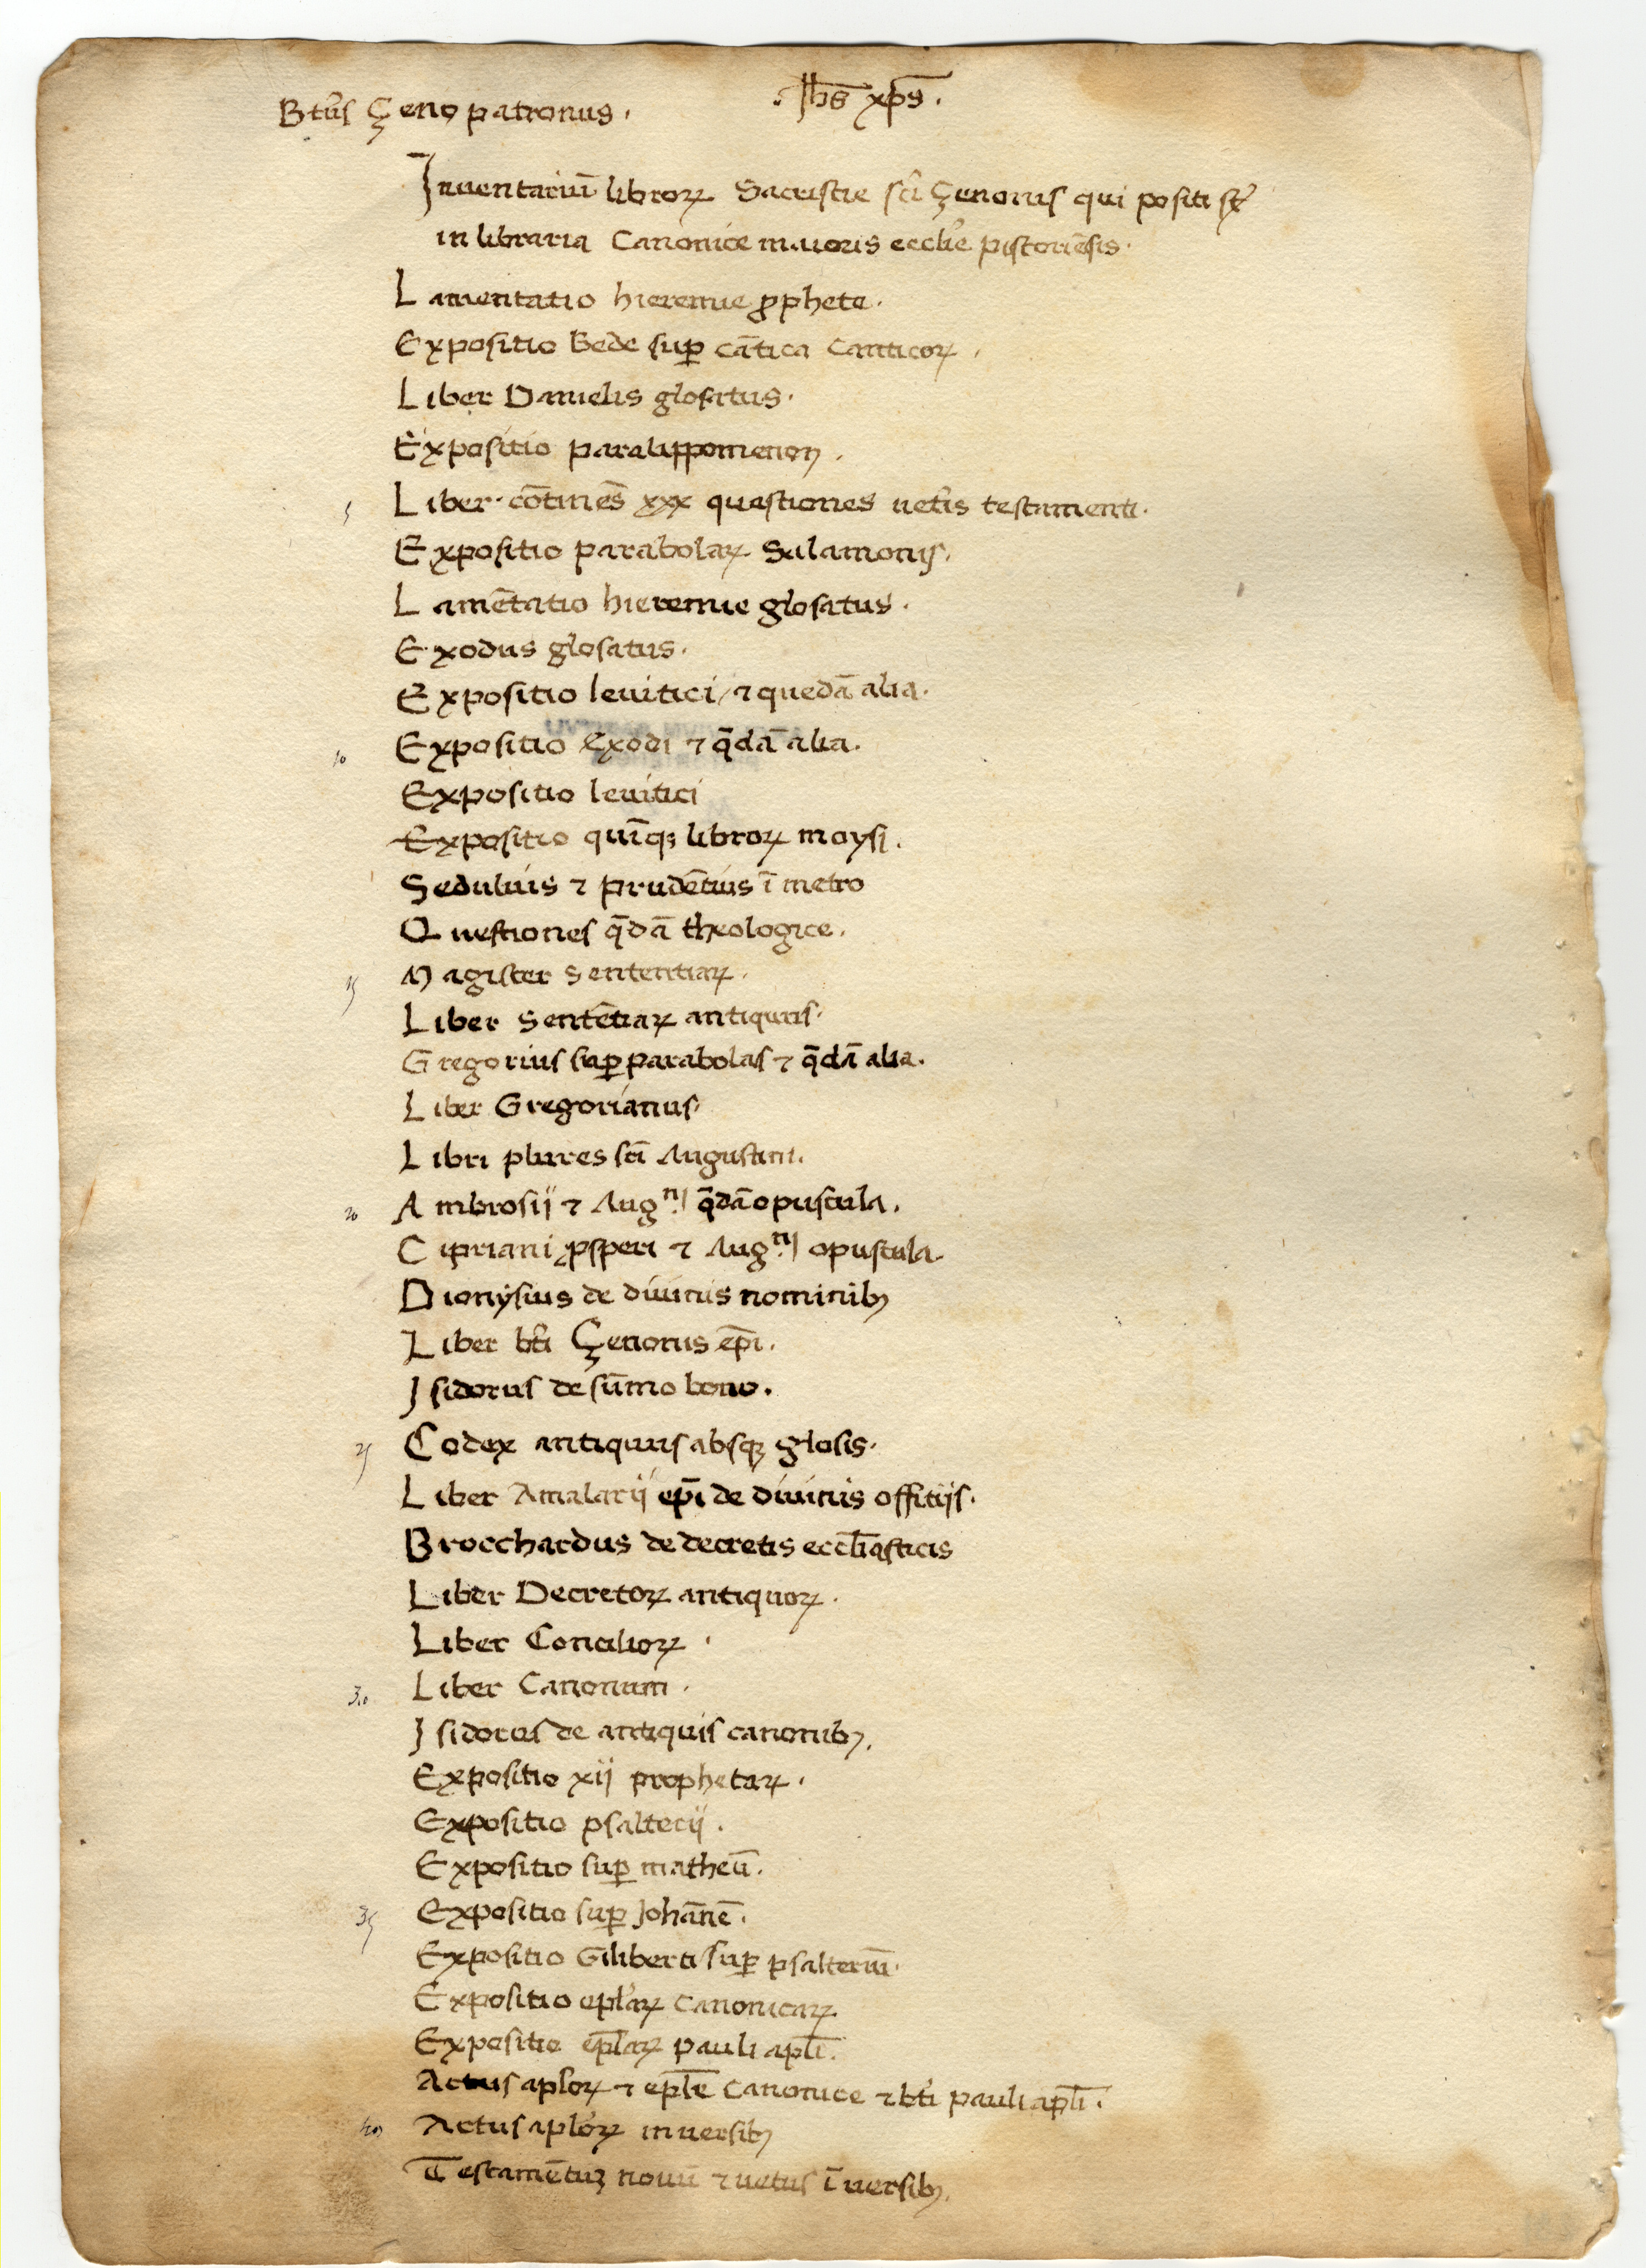 .Jh̄s xp̄s.
Bt̄us Çeno patronus.
Inuentariū libroꝝ Sacristie sc̄i Çenonis qui positi st̄
in libraria Canonice maioris eccl̄ie pistoriēsis.
Lamentatio hieremie ꝓphete.
Expositio Bede suꝑ cātica canticoꝝ.
Liber Danielis glosatus.
Expositio paralippomenon.
5 Liber cōtinēs xxx questiones uet̄is testamenti.
Expositio parabolaꝝ Salamonis.
Lamētatio hieremie glosatus.
Exodus glosatus.
Expositio leuitici / ⁊ quedā alia.
10 Expositio Exodi ⁊ q̄dā alia.
Expositio leuitici
Expositio quīqꝫ libroꝝ moysi.
Sedulius ⁊ prudētius ī metro
Questiones q̄dā theologice.
15 Magister Sententiaꝝ.
Liber Sentētiaꝝ antiquus.
Gregorius suꝑ parabolas ⁊ q̄dā alia.
Liber Gregorianus.
Libri plures sc̄i Augustini.
20 Ambrosij ⁊ Aug.ⁿⁱ q̄dā opuscula.
Cipriani ꝓsperi ⁊ Aug.ⁿⁱ opuscula.
Dionysius de diuinis nominibꝫ
Liber bt̄i Çenonis ep̄i.
Isidorus de sūmo bono.
25 Codex antiquus absqꝫ glosis.
Liber Amalarij ep̄i de diuinis offitijs.
Brocchardus de decretis eccl̄iasticis
Liber Decretoꝝ antiquoꝝ.
Liber Concilioꝝ.
30 Liber Canonum.
Isidorus de antiquis canonibꝫ.
Expositio xij prophetaꝝ.
Expositio psalterij.
Expositio suꝑ matheū.
35 Expositio suꝑ Johānē.
Expositio Giliberti suꝑ psalteriū.
Expositio epl̄aꝝ Canonicaꝝ
Expositio ep̄laꝝ pauli apl̄i.
Actus aploꝝ ⁊ epl̄e Canonice ⁊ bt̄i pauli apl̄i.
40 Actus apl̄oꝝ in uersibꝫ
Testamētuꝫ nouū ⁊ uetus ī uersibꝫ.